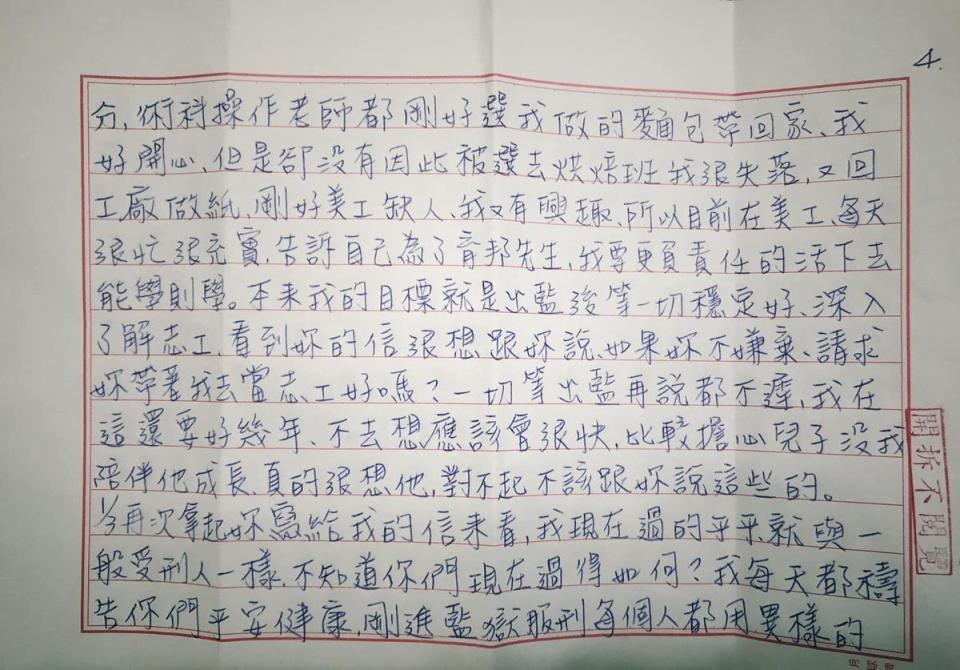 4.
分,術科操作老師都剛好選我做的麵包帶回家、我
好開心、但是卻沒有因此被選去烘焙班我很失落,又回
工廠做紙、剛好美工缺人、我又有興趣、所以目前在美工、每天
很忙很充實,告訴自己為了育邦先生,我要更負責任的活下去
能學則學。本來我的目標就是出監後等一切穩定好、深入
了解志工,看到妳的信很想跟妳說、如果妳不嫌棄、請求
妳帶著我去當志工好嗎?一切等出監再說都不遲,我在
這還要好幾年、不去想應該會很快,比較擔心兒子沒我
陪伴他成長,真的很想他,對不起不該跟妳說這些的。
再次拿起妳寫給我的信來看,我現在過的平平,就與一
般受刑人一樣,不知道你們現在過得如何?我每天都禱
告你們平安健康,剛進監獄服刑每個人都用異樣的
開拆不閱覽